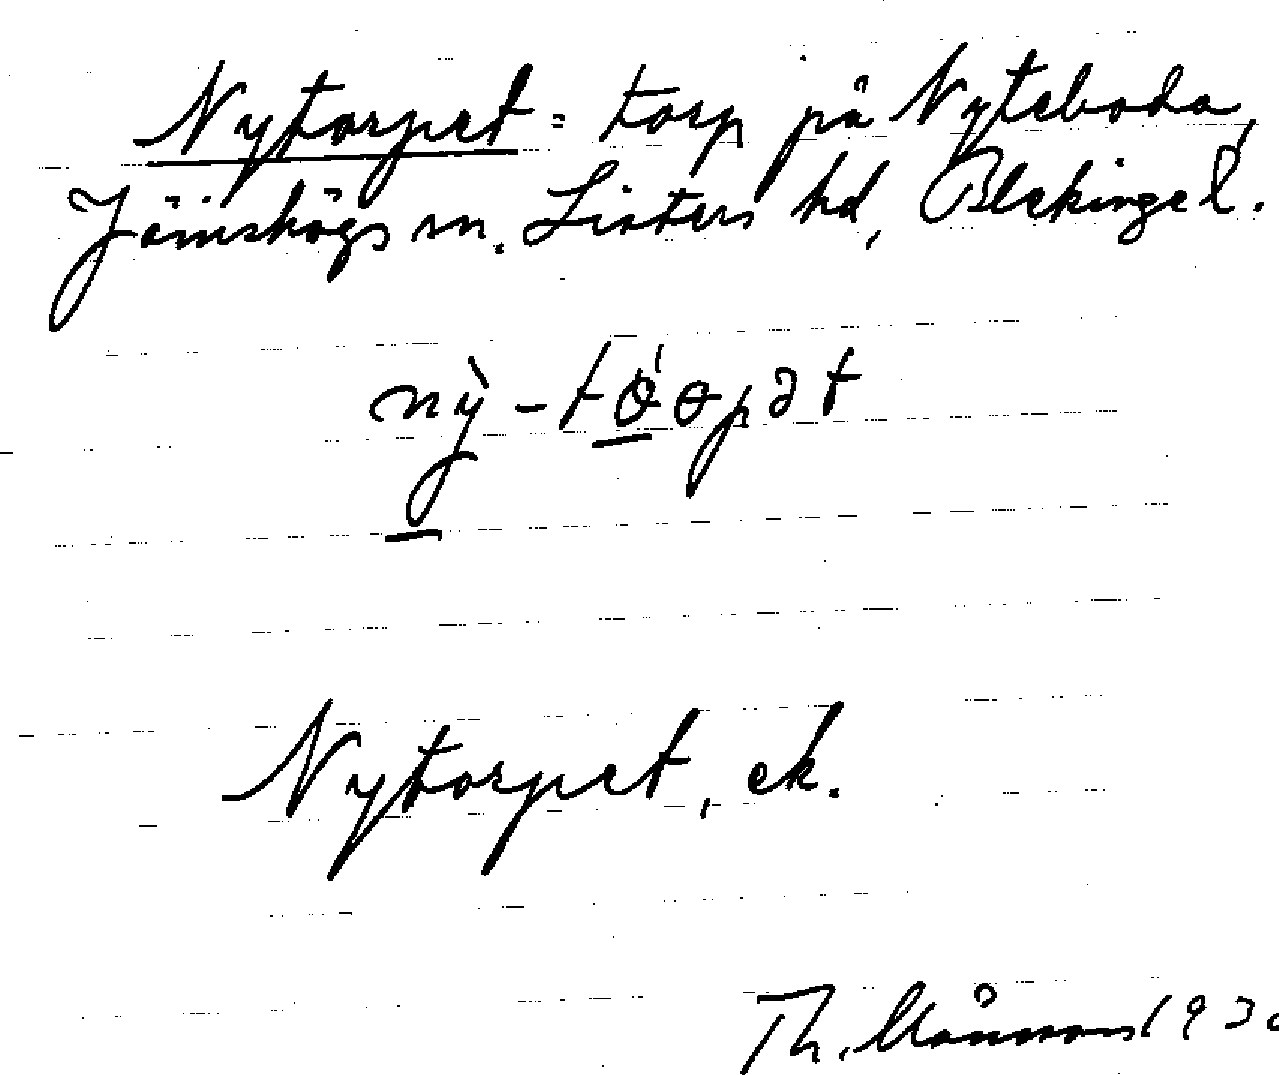 Nytorpet = torp på Nyteboda,
Jämshögs sn. Listers hd, Blekinge l.
Nytorpet, ek.
Th. Månsson 1930